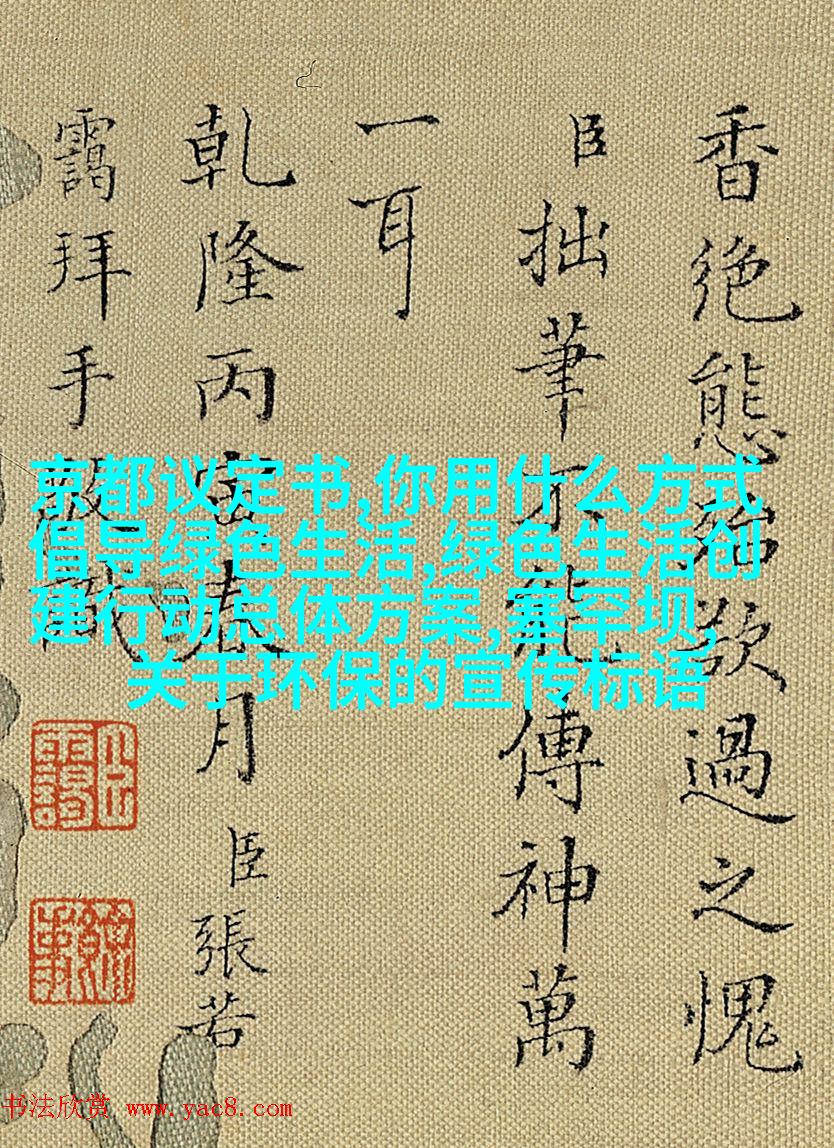 香絶態欲過之愧
臣拙筆不能傳神萬
一耳
乾隆丙寅春月臣張若
靄拜手敬
京都议定书,你用什么方式
倡导绿色生活,绿色生活创
建行动总体方案,塞罕坝,
关于环保的宣传标语
书法欣赏 www.yac8.com